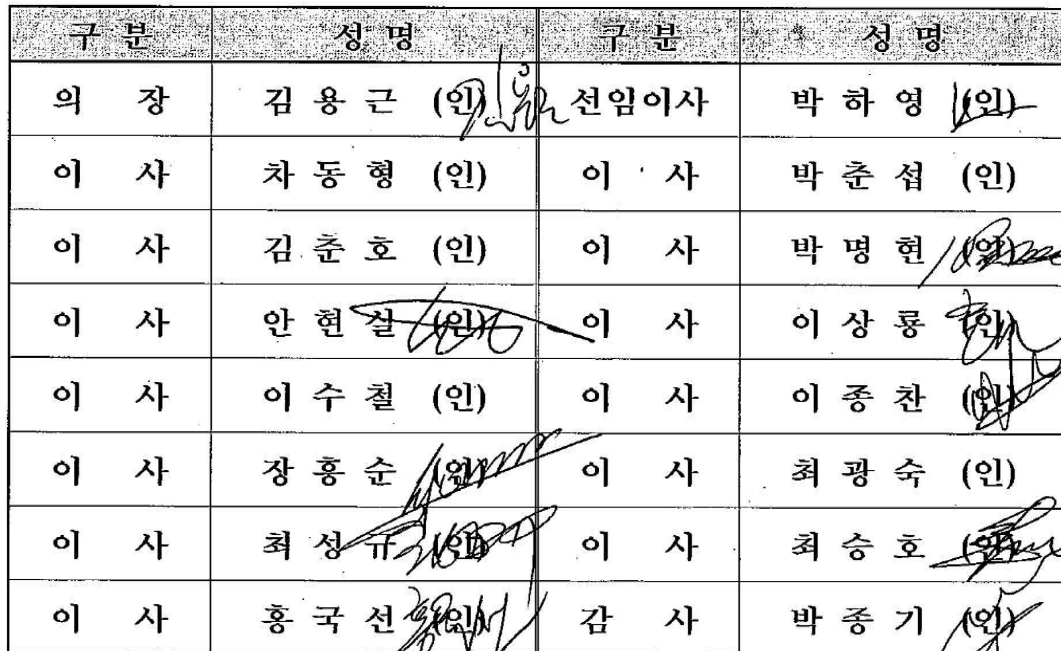 구 분 성 명 구 분 성 명
의 장 김 용 근 (인) 선임이사 박 하 영 (인)
이 사 차 동 형 (인) 이 사 박 춘 섭 (인)
이 사 김 춘 호 (인) 이 사 박 명 현 (인)
이 사 안 현 실 (인) 이 사 이 상 룡 (인)
이 사 이 수 철 (인) 이 사 이 종 찬 (인)
이 사 장 흥 순 (인) 이 사 최 광 숙 (인)
이 사 최 성 규 (인) 이 사 최 승 호 (인)
이 사 홍 국 선 (인) 감 사 박 종 기 (인)